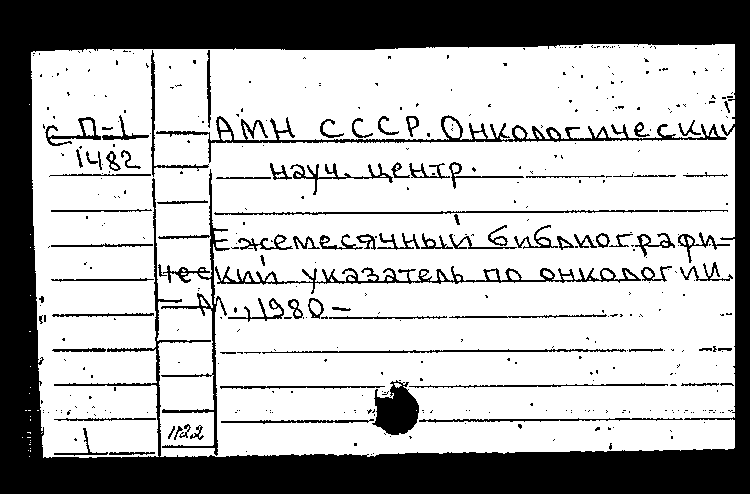 с П-1
1482
АМН СССР. Онкологический
науч. центр.
Ежемесячный библиографи-
ческий указатель по онкологии.
- М., 1980 -
1
1122